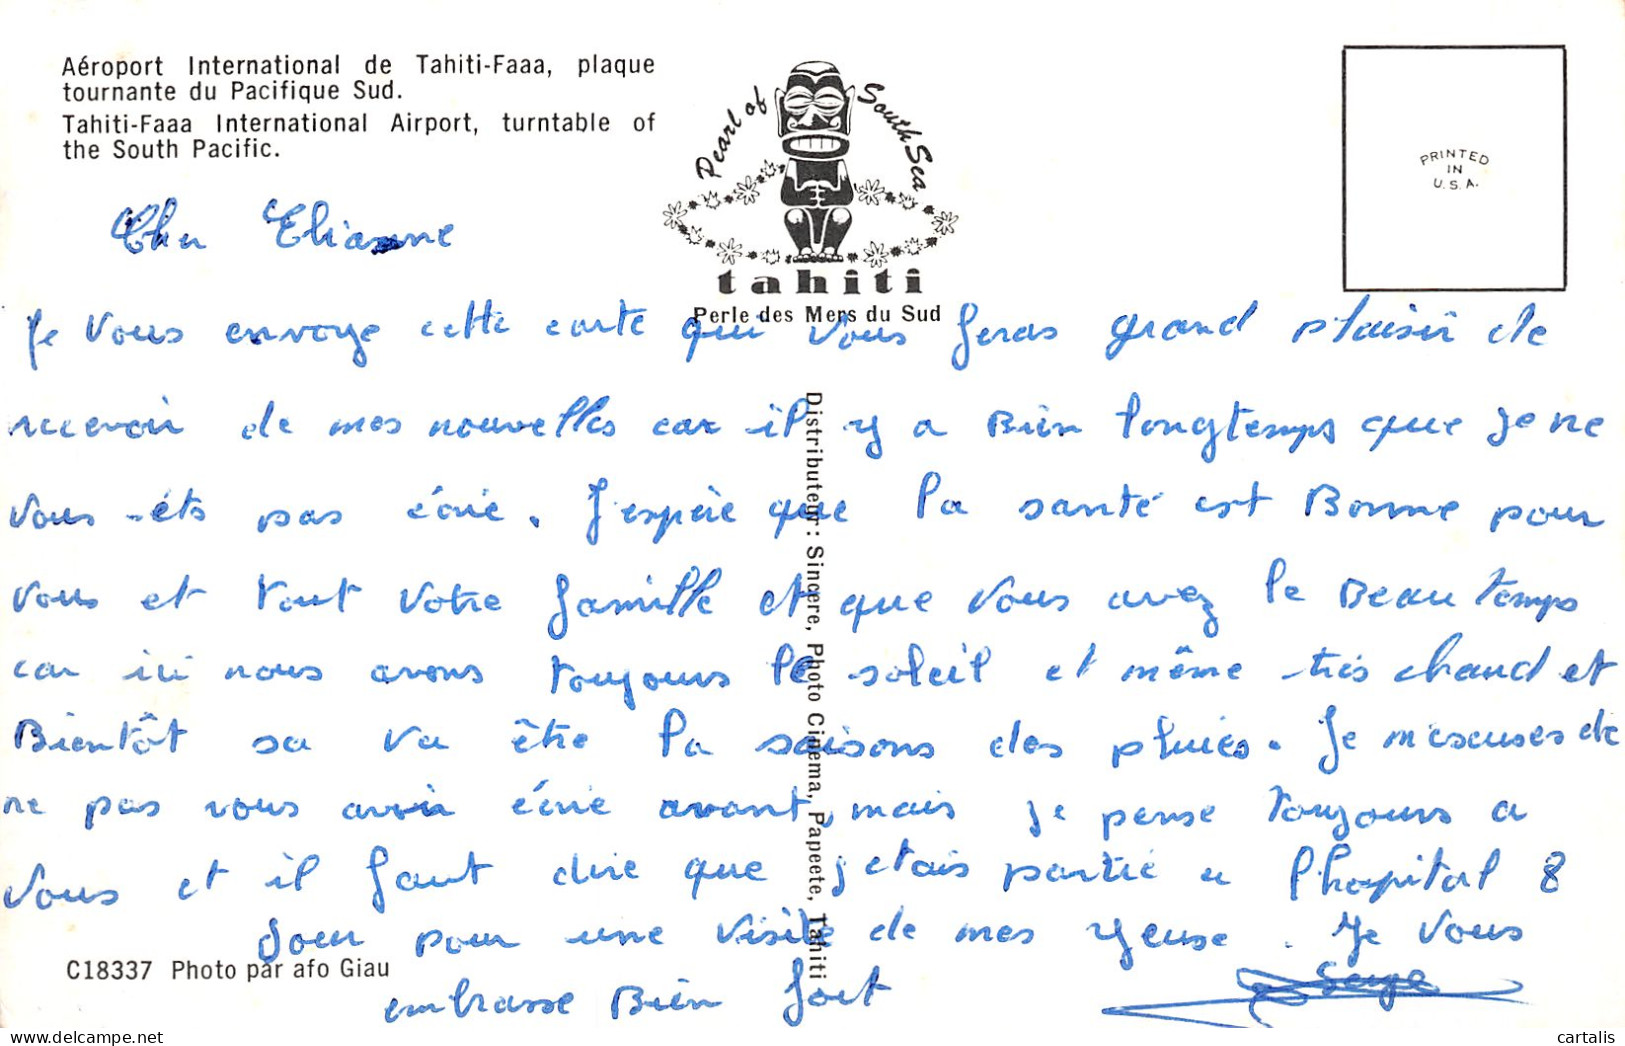 Aéroport International de Tahiti-Faaa, plaque
tournante du Pacifique Sud.
Tahiti-Faaa International Airport, turntable of
the South Pacific.
Pearl of South Sea
tahiti
Perle des Mers du Sud
PRINTED
IN
U.S.A.
Cher Elianne
Je vous envoye cette carte qui vous feras grand plaisir de
recevoir de mes nouvelles car il y a Bien longtemps que je ne
vous éts pas écrie. J'espère que la santé est Bonne pour
vous et tout votre famille et que vous avez le Beau temps
car ici nous avons toujours le soleil et même très chaud et
Bientôt sa va être la saisons des pluies. Je m'escuses de
ne pas vous avoir écrie avant, mais je pense toujours a
vous et il faut dire que j'etais partie a l'hopital 8
Jour pour une visite de mes yeuse. Je vous
embrasse Bien fort
Serge
Distributeur: Sincere, Photo Cinema, Papeete, Tahiti
C18337 Photo par afo Giau
cartalis